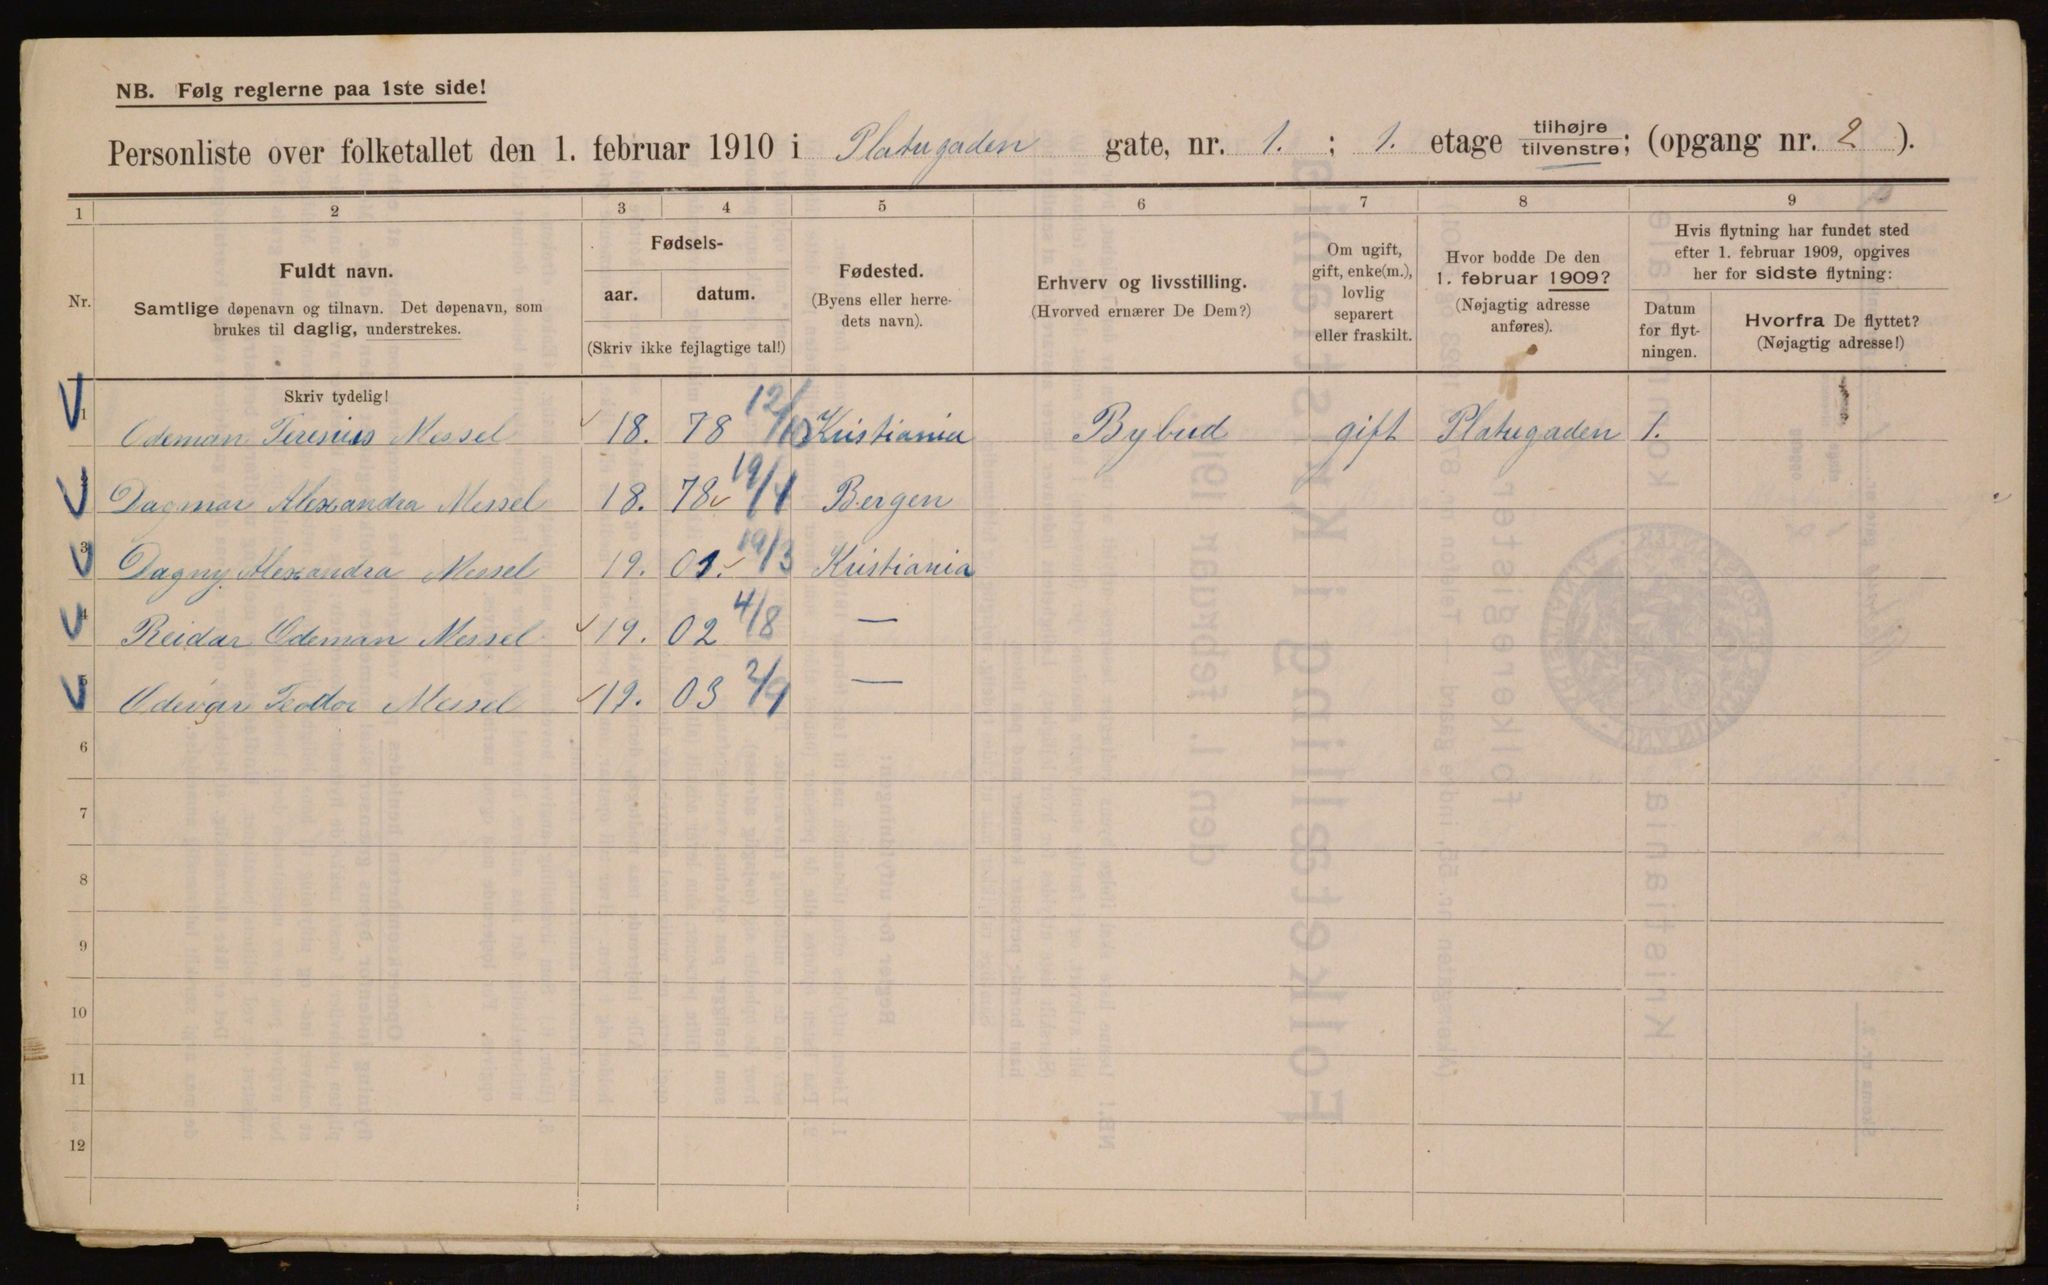 NB. Følg reglerne paa 1ste side!
Personliste over folketallet den 1. februar 1910 i Platugaden gate, nr. 1. ; 1. etage tilhøjre tilvenstre; (opgang nr. 2 ).
1 2 3 4 5 6 7 8 9
Nr.
Fuldt navn.
Samtlige døpenavn og tilnavn. Det døpenavn, som
brukes til daglig, understrekes.
Fødsels-
aar. datum.
(Skriv ikke fejlagtige tal!)
Fødested.
(Byens eller herre-
dets navn).
Erhverv og livsstilling.
(Hvorved ernærer De Dem?)
Om ugift,
gift, enke(m.),
lovlig
separert
eller fraskilt.
Hvor bodde De den
1. februar 1909?
(Nøjagtig adresse
anføres).
Hvis flytning har fundet sted
efter 1. februar 1909, opgives
her for sidste flytning:
Datum
for flyt-
ningen.
Hvorfra De flyttet?
(Nøjagtig adresse!)
Skriv tydelig!
1 Odeman Teresius Messel 18. 78 12/10 Kristiania Bybud gift Platugaden 1.
Dagmar Alexandra Messel 18. 78 19/1 Bergen
3 Dagny Alexandra Messel 19. 01. 19/3 Kristiania
4 Reidar Odeman Messel 19. 02 4/8 —
5 Odevar Teodor Messel 19. 03 2/9 —
6
7
8
9
10
11
12